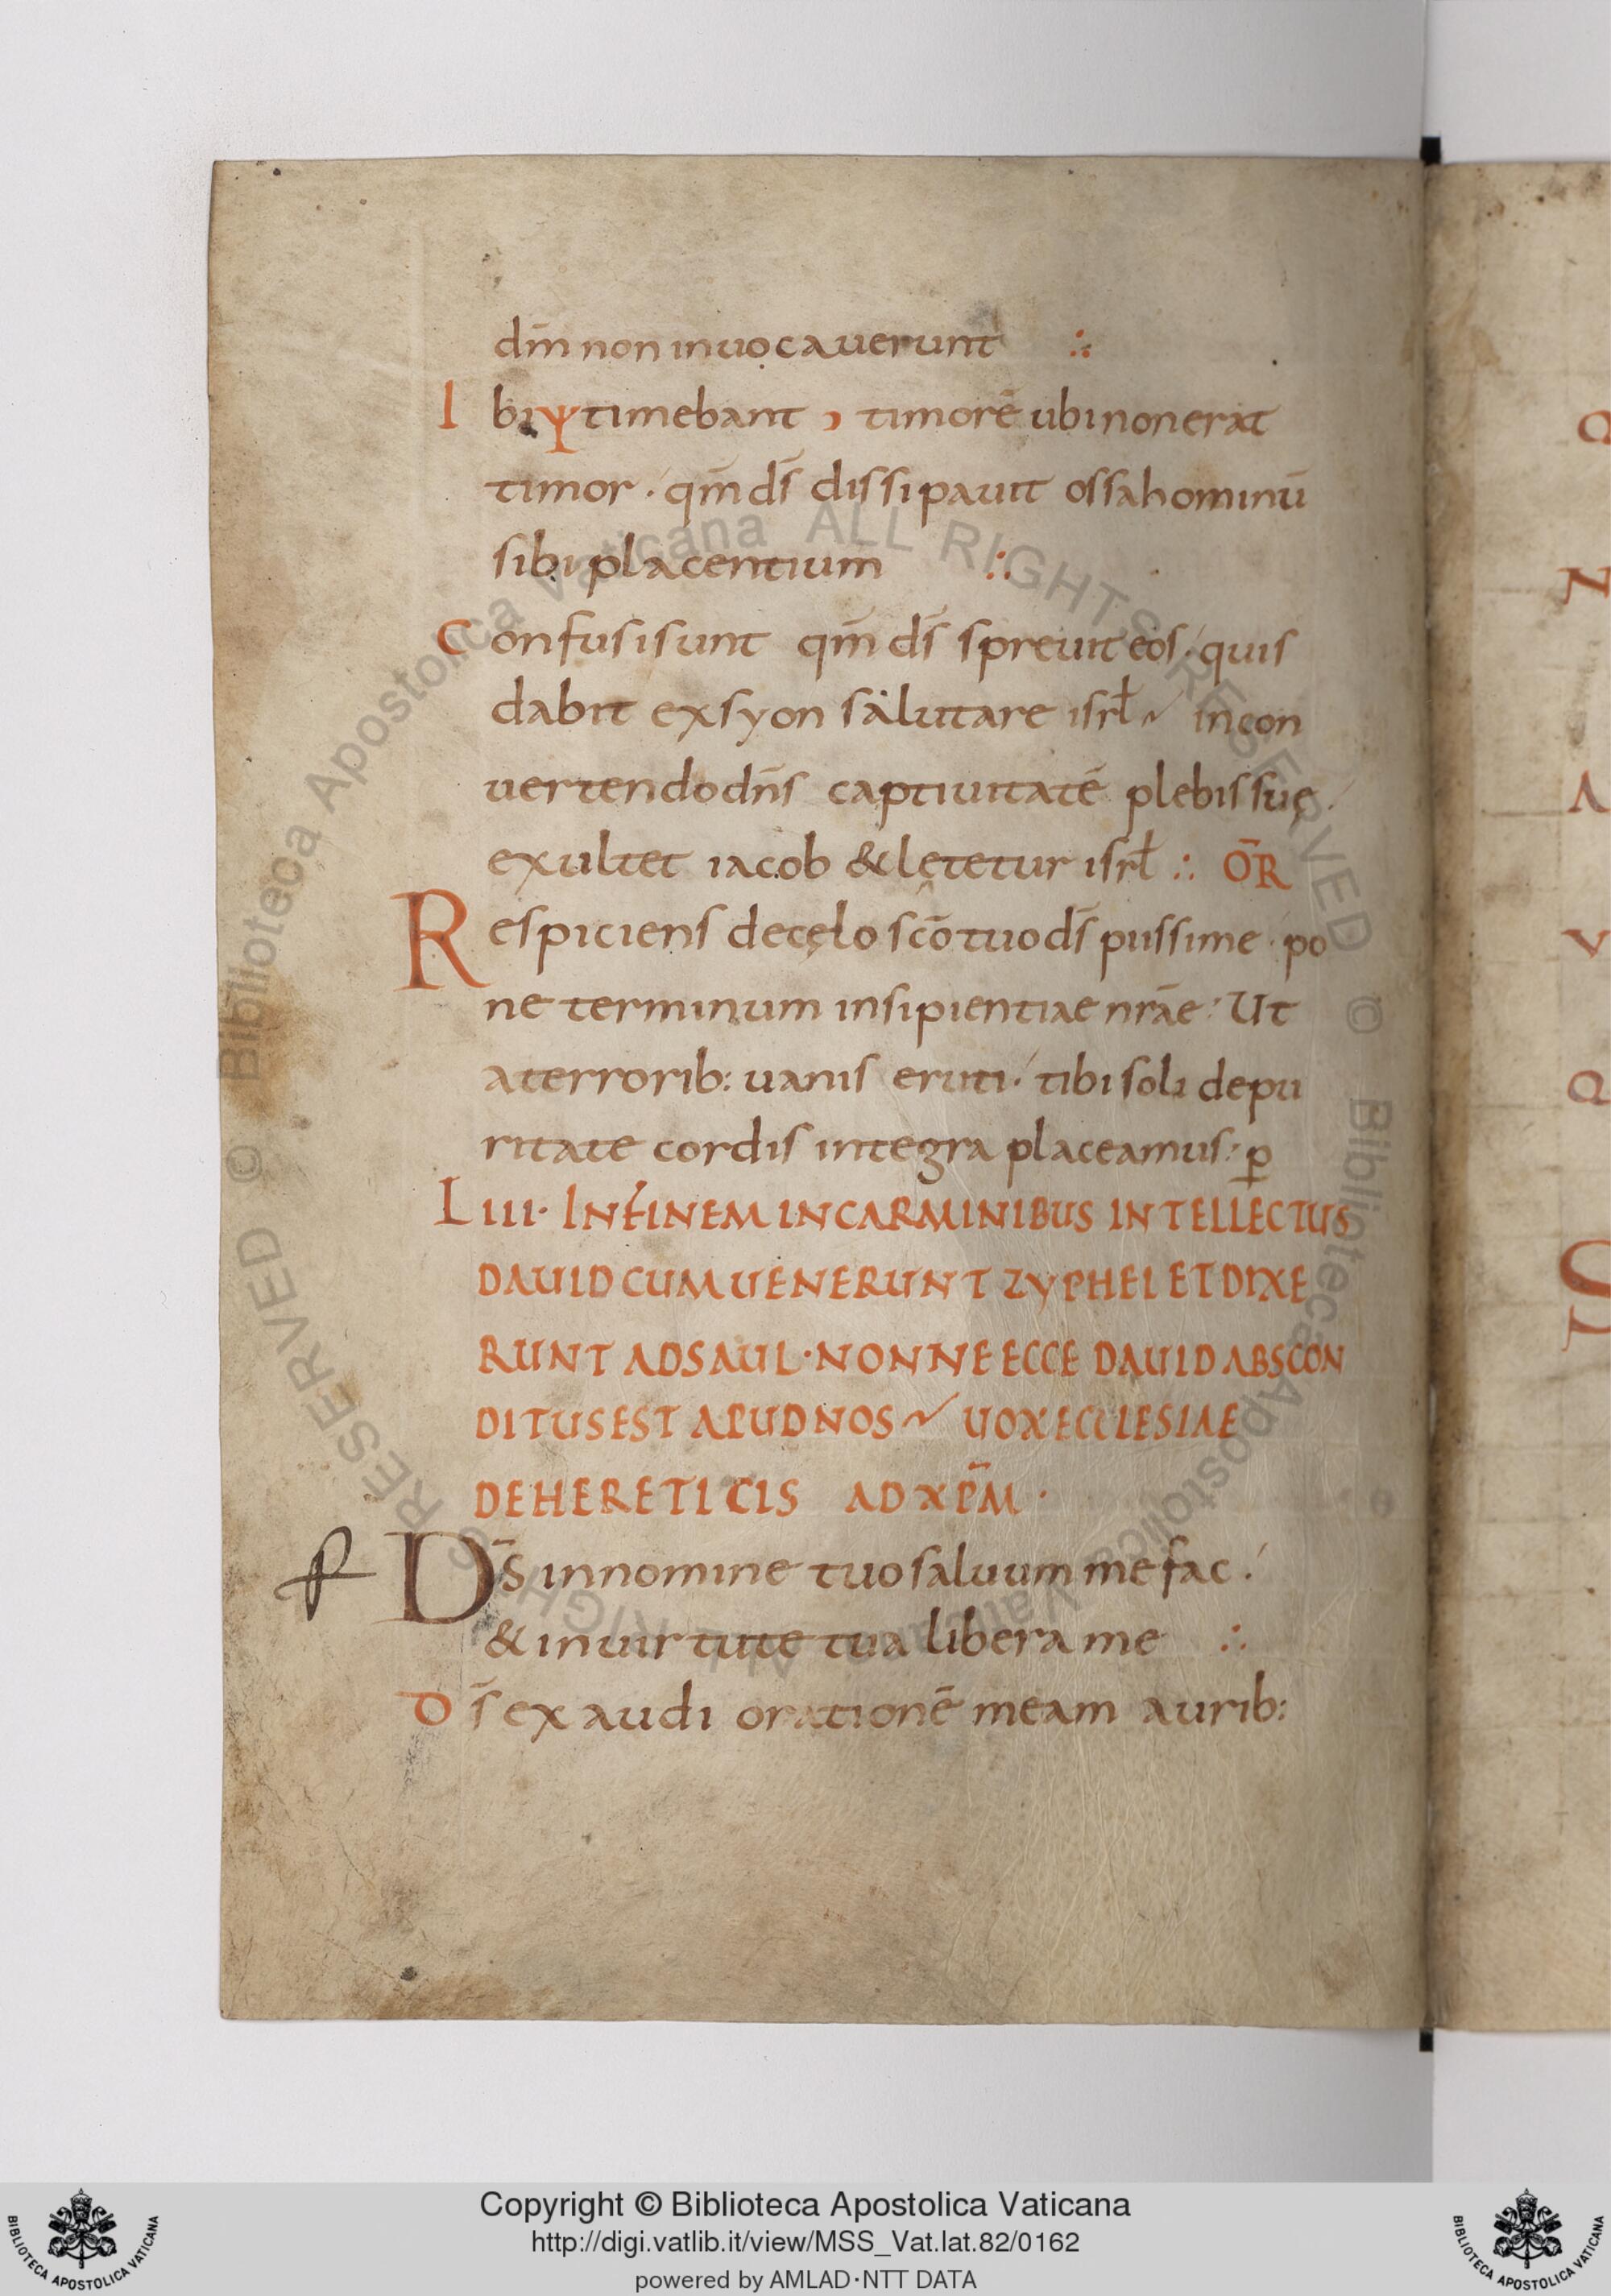 dm̄ non inuocauerunt ∴
Ibi ψ timebant , timorē ubi non erat
timor · qm̄ ds̄ dissipauit ossa hominū
sibi placentium ∴
Confusi sunt qm̄ ds̄ spreuit eos · quis
dabit ex syon salutare isrł in con
uertendo dn̄s captiuitatē plebis suę
exultet iacob & lętetur isrł ∴ ŌR
Respiciens de cęlo sc̄o tuo ds̄ piissime · po
ne terminum insipientiae nrāe · Ut
a terrorib: uanis eruti · tibi soli de pu
ritate cordis integra placeamus · ꝑ
LIII · IN FINEM IN CARMINIBUS INTELLECTUS
DAUID CUM UENERUNT ZYPHEI ET DIXE
RUNT AD SAUL · NONNE ECCE DAUID ABSCON
DITUS EST APUD NOS UOX ECCLESIAE
DE HERETICIS AD XP̄M ·
DS̄ in nomine tuo saluum me fac ·
& in uirtute tua libera me ∴
Ds̄ exaudi orationē meam aurib:
Copyright © Biblioteca Apostolica Vaticana
http://digi.vatlib.it/view/MSS_Vat.lat.82/0162
powered by AMLAD·NTT DATA
BIBLIOTECA APOSTOLICA VATICANA
BIBLIOTECA APOSTOLICA VATICANA
© Biblioteca Apostolica Vaticana ALL RIGHTS RESERVED © Biblioteca Apostolica Vaticana ALL RIGHTS RESERVED